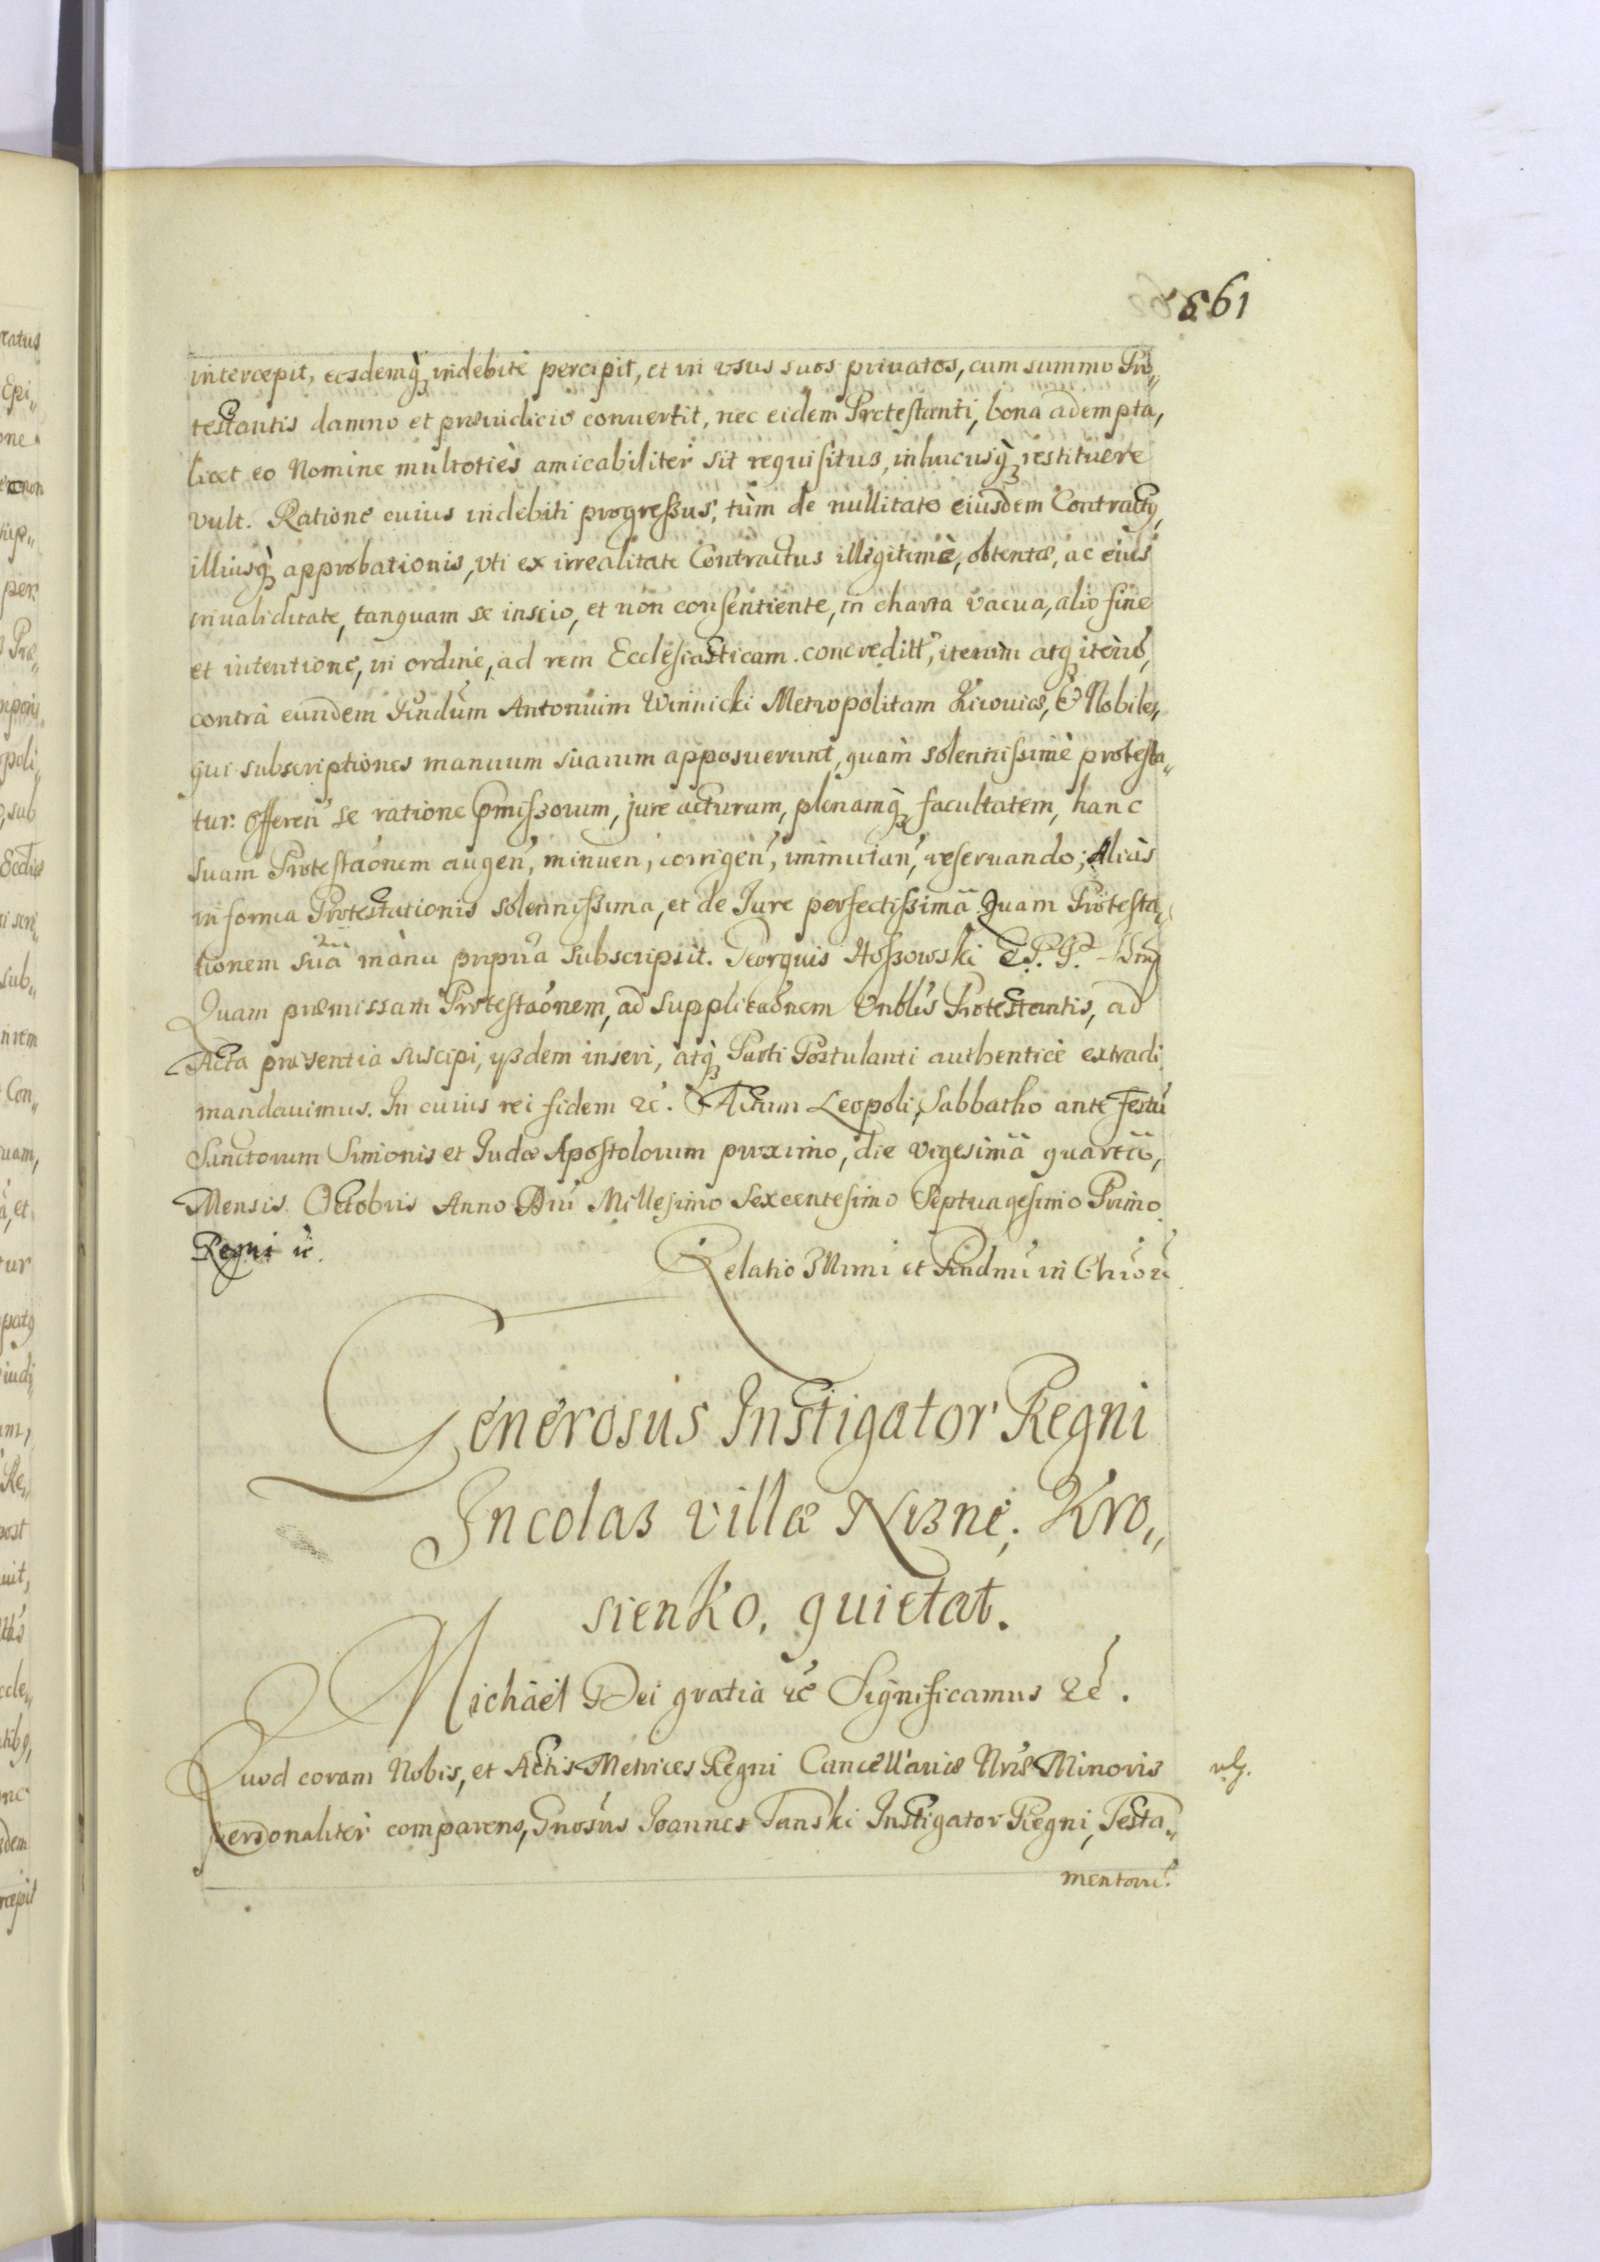 561
intercepit, eosdemq₃ indebitè percipit, et in vsus suos priuatos, cum summo Pro„
testantis damno et præiudicio conuertit, nec eidem Protestanti, bona adempta,
licet eo Nomine multotiès amicabiliter sit requisitus, in hucusq₃ restituere
vult. Ratione cuius indebiti progressus, tùm de nullitate eiusdem Contractus,
illiusq₃ approbationis, vti ex irrealitate Contractus illigitimè, obtentæ, ac eius
inualiditate, tanquam se inscio, et non consentiente, in charta vacua, alio fine
et intentione, in ordine, ad rem Ecclesiasticam concreditt, iterùm atq₃ iterùm,
contrà eundem Rndum Antonium Winnicki Metropolitam Kiiouiæ, & Nobiles,
qui subscriptiones manuum suarum apposuerunt, quàm solennissimè protesta„
tur. Offeren se ratione pmissorum, jure acturum, plenamq₃ facultatem, hanc
suam Protestaonem augen, minuen, corrigen, immutan, reseruando; Aliàs
in forma Protestationis solennissima, et de Jure perfectissimâ Quam Protesta„
tionem suâ mànu ppria subscripsit. Georguis Hoszowski E. P. P.
Quam præmissam Protestaonem, ad supplicaonem Vnblis Protestantis, ad
Acta præsentia suscipi, ysdem inseri, atq₃ Parti Postulanti authenticè extradi
mandauimus. In cuius rei fidem &c. Actum Leopoli, Sabbatho ante Festu
Sanctorum Simonis et Judæ Apostolorum proximo, die vigesimâ quartâ,
Mensis Octobris Anno Dni Millesimo Sexcentesimo Septuagesimo Primo
Regni &c.
Relatio Illmi et Rndmi in Chro &c
Generosus Instigator Regni
Incolas villæ Nizne, Kro„
sienko, quietat.
Michäel Dei gratia &c Significamus &c.
Quod coram Nobis, et Actis Metrices Regni Cancellariæ Nræ Minoris
Personaliter comparens, Gnosus Joannes Tanski Instigator Regni, Testa„
mentoru